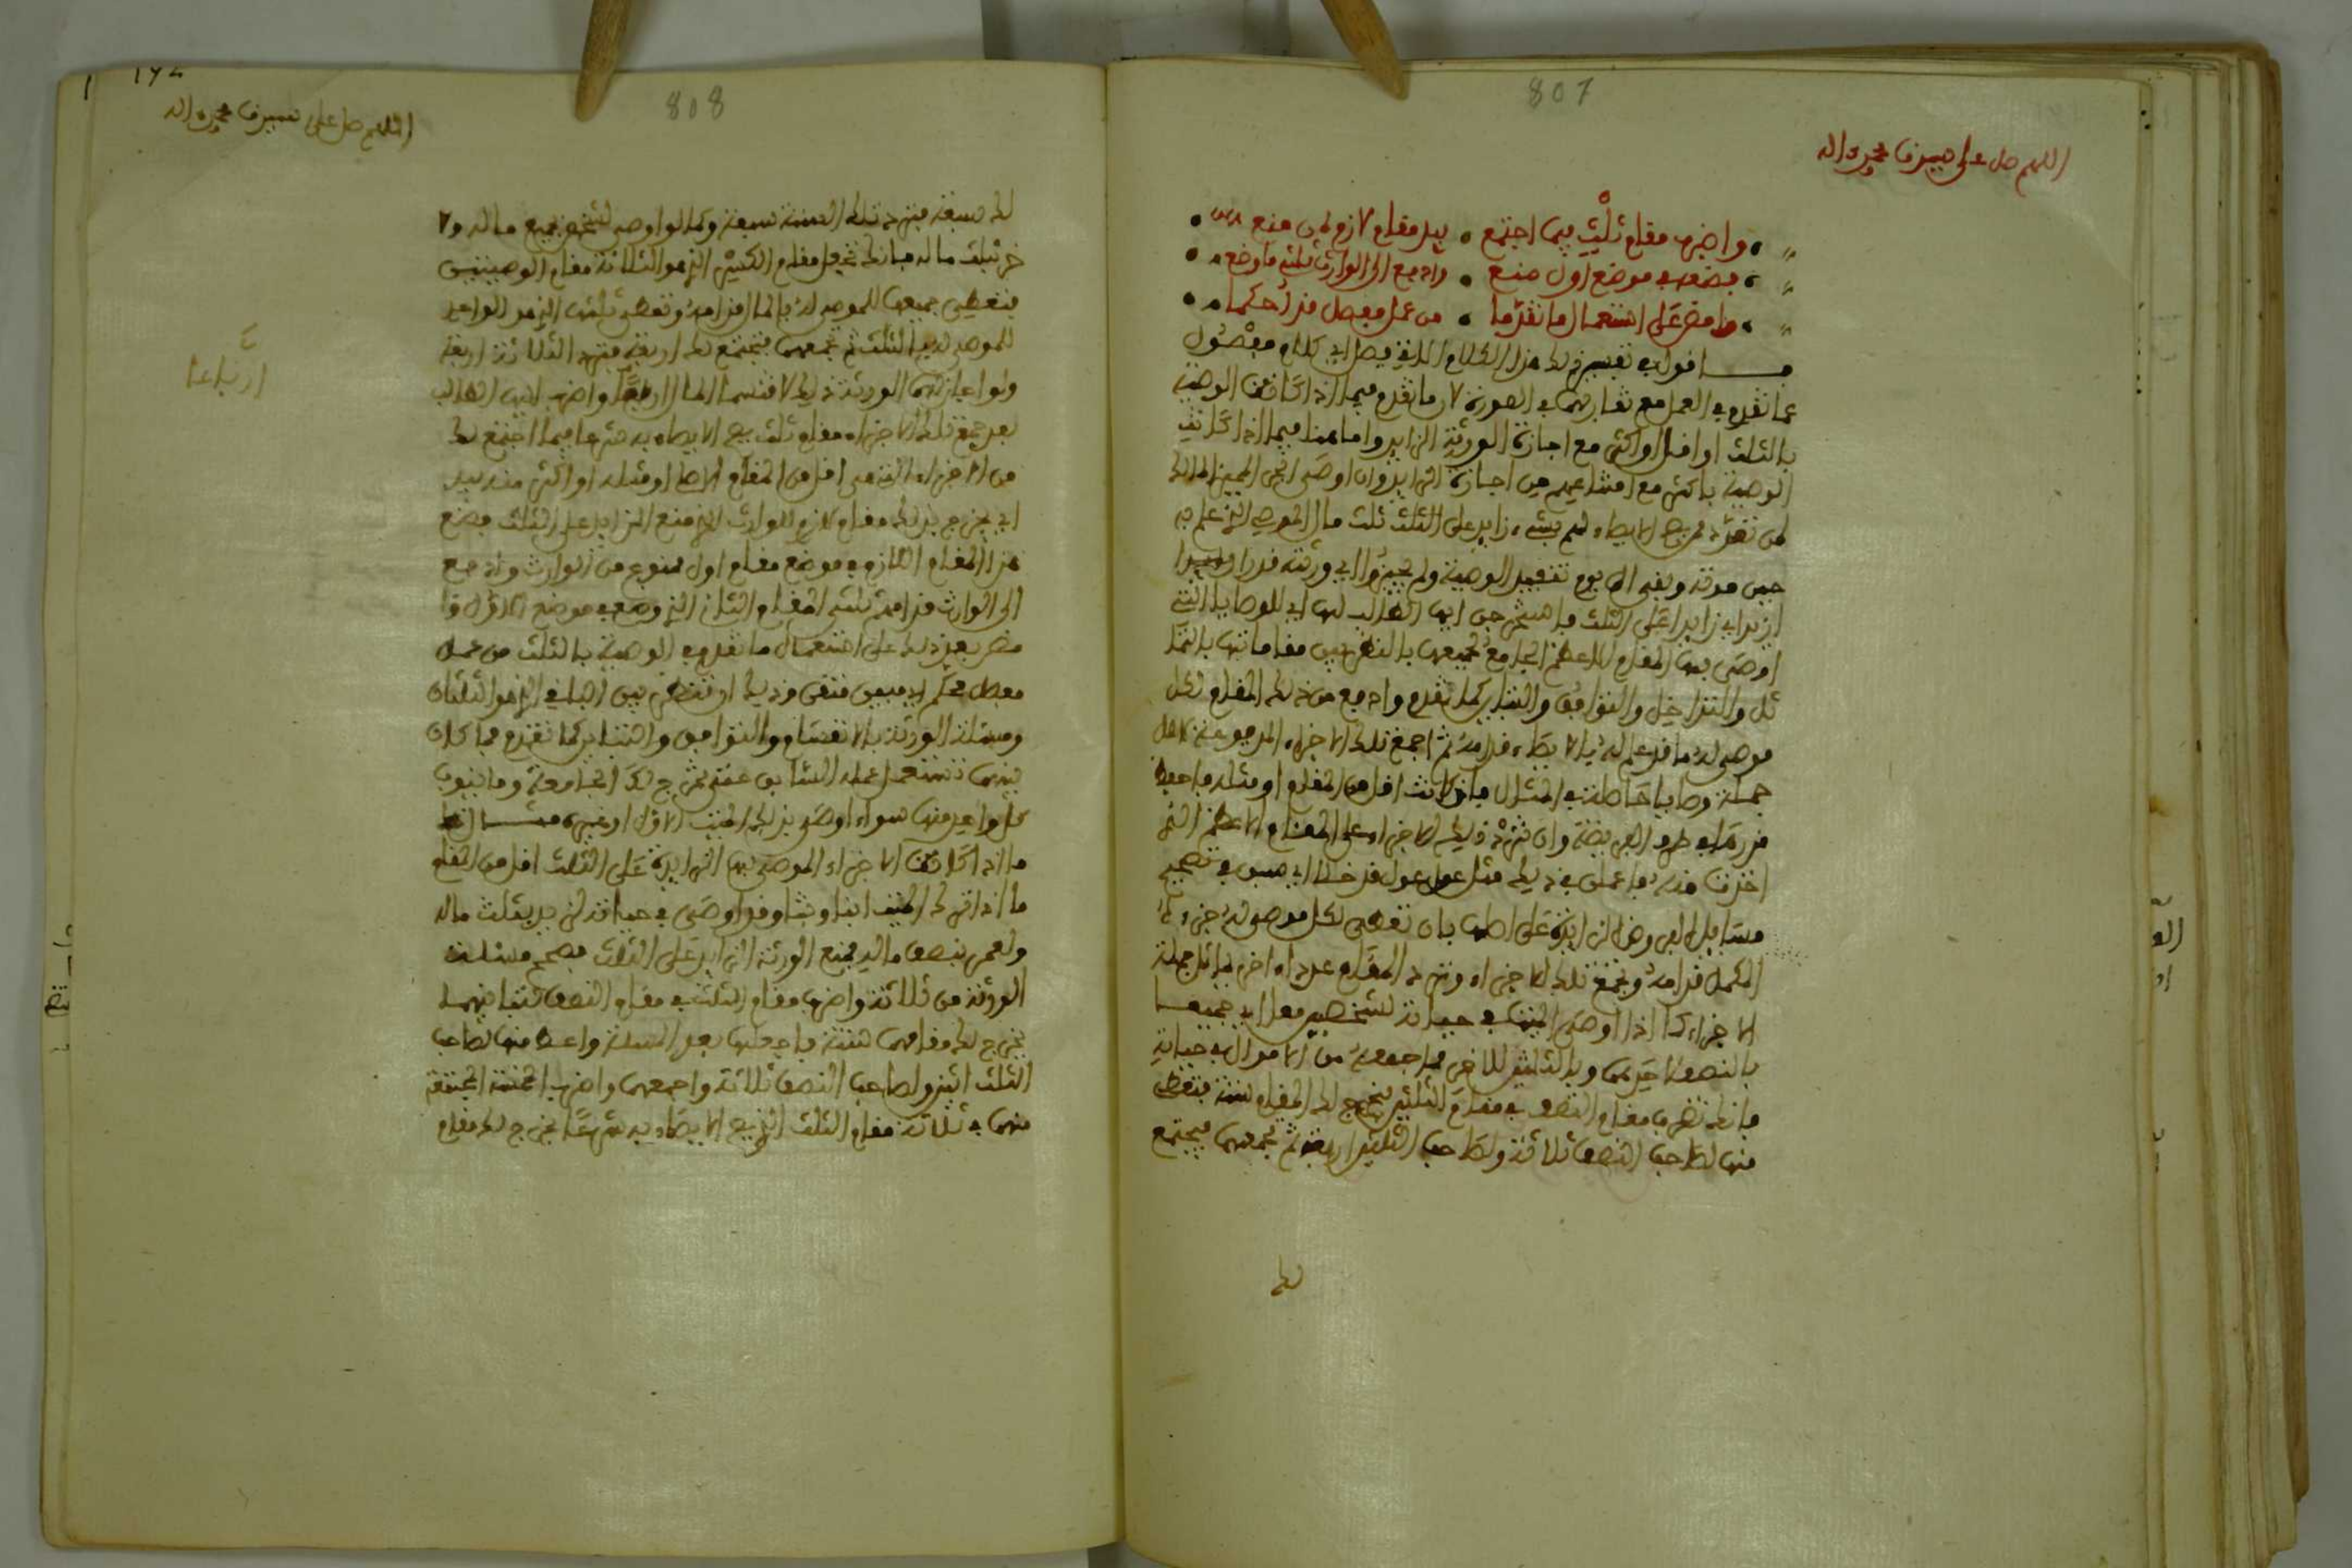 807
اللهم صل على سيدنا محمد واله
واضرب مقام ثلث فيما اجتمع • يبد مقام لازم لمن منع
فضعه في موضع اول صنع • وادفع الى الوارث ثلثي ما وضع
وامض على استعمال ما تقدما • من عمل مفصل قد احكما
اقول في تفسير ذلك هذا الكلام الذي يصل الي كلام مفصول
عما تقدم في العمل مع تقاربهما في الصورة لان ما تقدم فيما اذا كانت الوصية
بالثلث او اقل او اكثر مع اجازة الورثة الزايد واما هنا فيما اذا كانت
الوصية باكثر مع امتناعهم من اجازة الزايد وان اوصى الحي المميز المالك
لمن تقرر صح الايصاء لهم بشيء زايد على الثلث ثلث مال الموصي الذي علم به
حين موته وبقي الى يوم تنفيذ الوصية ولم يجيزوا اي ورثته قدرا
ازيد اي زايدا على الثلث فاستخرجن ايها الطالب لها اي للوصايا التي
اوصى بها المقام الاعظم الجامع لجميعها بالنظر بين مقاماتها بالتما
ثل والتداخل والتوافق والتباين كما تقدم وادفع من ذلك المقام لكل
موصى له ما قد علم له بالايصاء قدامه ثم اجمع تلك الاجزاء المدفوعة لاهل
جملة وصايا حاصلة في المثال فان كانت اقل من المقام او مثله فاجعلها
في طرف الفريضة وان تزد ذلك الاجزاء على المقام الاعظم التي
اخذت منه فاعملن في ذلك مثل عمل عول قد خلا اي سبق في تصحيح
مسايل الفروض الزايدة على اصلها بان تعطي لكل موصى له جزءه
المكمل قدامه وتجمع تلك الاجزاء وتزد المقام عددا اخر يماثل جملة
الاجزاء كما اذا اوصى الميت في حياته لشخصين معا اي جميعا
بالنصف لاحدهما وبالثلثين للاخر مما جمعه من الاموال في حياته
فانك تضرب مقام النصف في مقام الثلثين يخرج لك المقام ستة فتعطي
منها لصاحب النصف ثلاثة ولصاحب الثلثين اربعة ثم تجمعهما فيجتمع
لك
808
اللهم صل على سيدنا محمد واله
لك سبعة فتزد تلك الستة سبعة وكما لو اوصى لشخص بجميع ماله ولا
خر بثلث ماله فانك تجعل مقام الكسر الذي هو الثلاثة مقام الوصيتين
فتعطي جميعها للموصى له بالمال قدامه وتعطي ثلثها الذي هو الواحد
للموصى له بالثلث ثم تجمعهما فيجتمع لك اربعة فتزد الثلاثة اربعة
ولو اجازهما الورثة ذلك لاقتسما المال ارباعا واضرب ايها الطالب
بعد جمع تلك الاجزاء مقام ثلث يصح الايصاء به شرعا فيما اجتمع لك
من الاجزاء التي هي اقل من المقام الاصلي او مثله او اكثر منه يبد
اي يخرج بذلك مقام لازم للوارث الذي منع الزايد على الثلث فضع
هذا المقام اللازم في موضع مقام اول ممنوع من الوارث وادفع
الى الوارث قدامه ثلثي المقام الثاني الذي وضع في موضع الاول وا
مض بعد ذلك على استعمال ما تقدم في الوصية بالثلث من عمل
مفصل محكم اي مبين متقن وذلك ان تنظر بين الباقي الذي هو الثلثان
ومسئلة الورثة بالانقسام والتوافق والتباين كما تقدم فما كان
بينهما تستعمل عمله السابق حتى تخرج لك الجامعة وما ينوب
كل واحد منها سواء اوصى بذلك الميت الاول او غيره مثال
ما اذا كانت الاجزاء الموصى بها الزايدة على الثلث اقل من المقام
ما اذا ترك الميت ابنا وبنتا وقد اوصى في حياته لزيد بثلث ماله
ولعمر بنصف ماله فمنع الورثة الزايد على الثلث فصحح مسئلة
الورثة من ثلاثة واضرب مقام الثلث في مقام النصف لتباينهما
يخرج لك مقامهما ستة فاجعلها بعد المسئلة واعط منها لصاحب
الثلث اثنين ولصاحب النصف ثلاثة واجمعهما واضرب الخمسة المجتمعة
منهما في ثلاثة مقام الثلث الذي يصح الايصاء به شرعا يخرج لك مقام
ارباعا